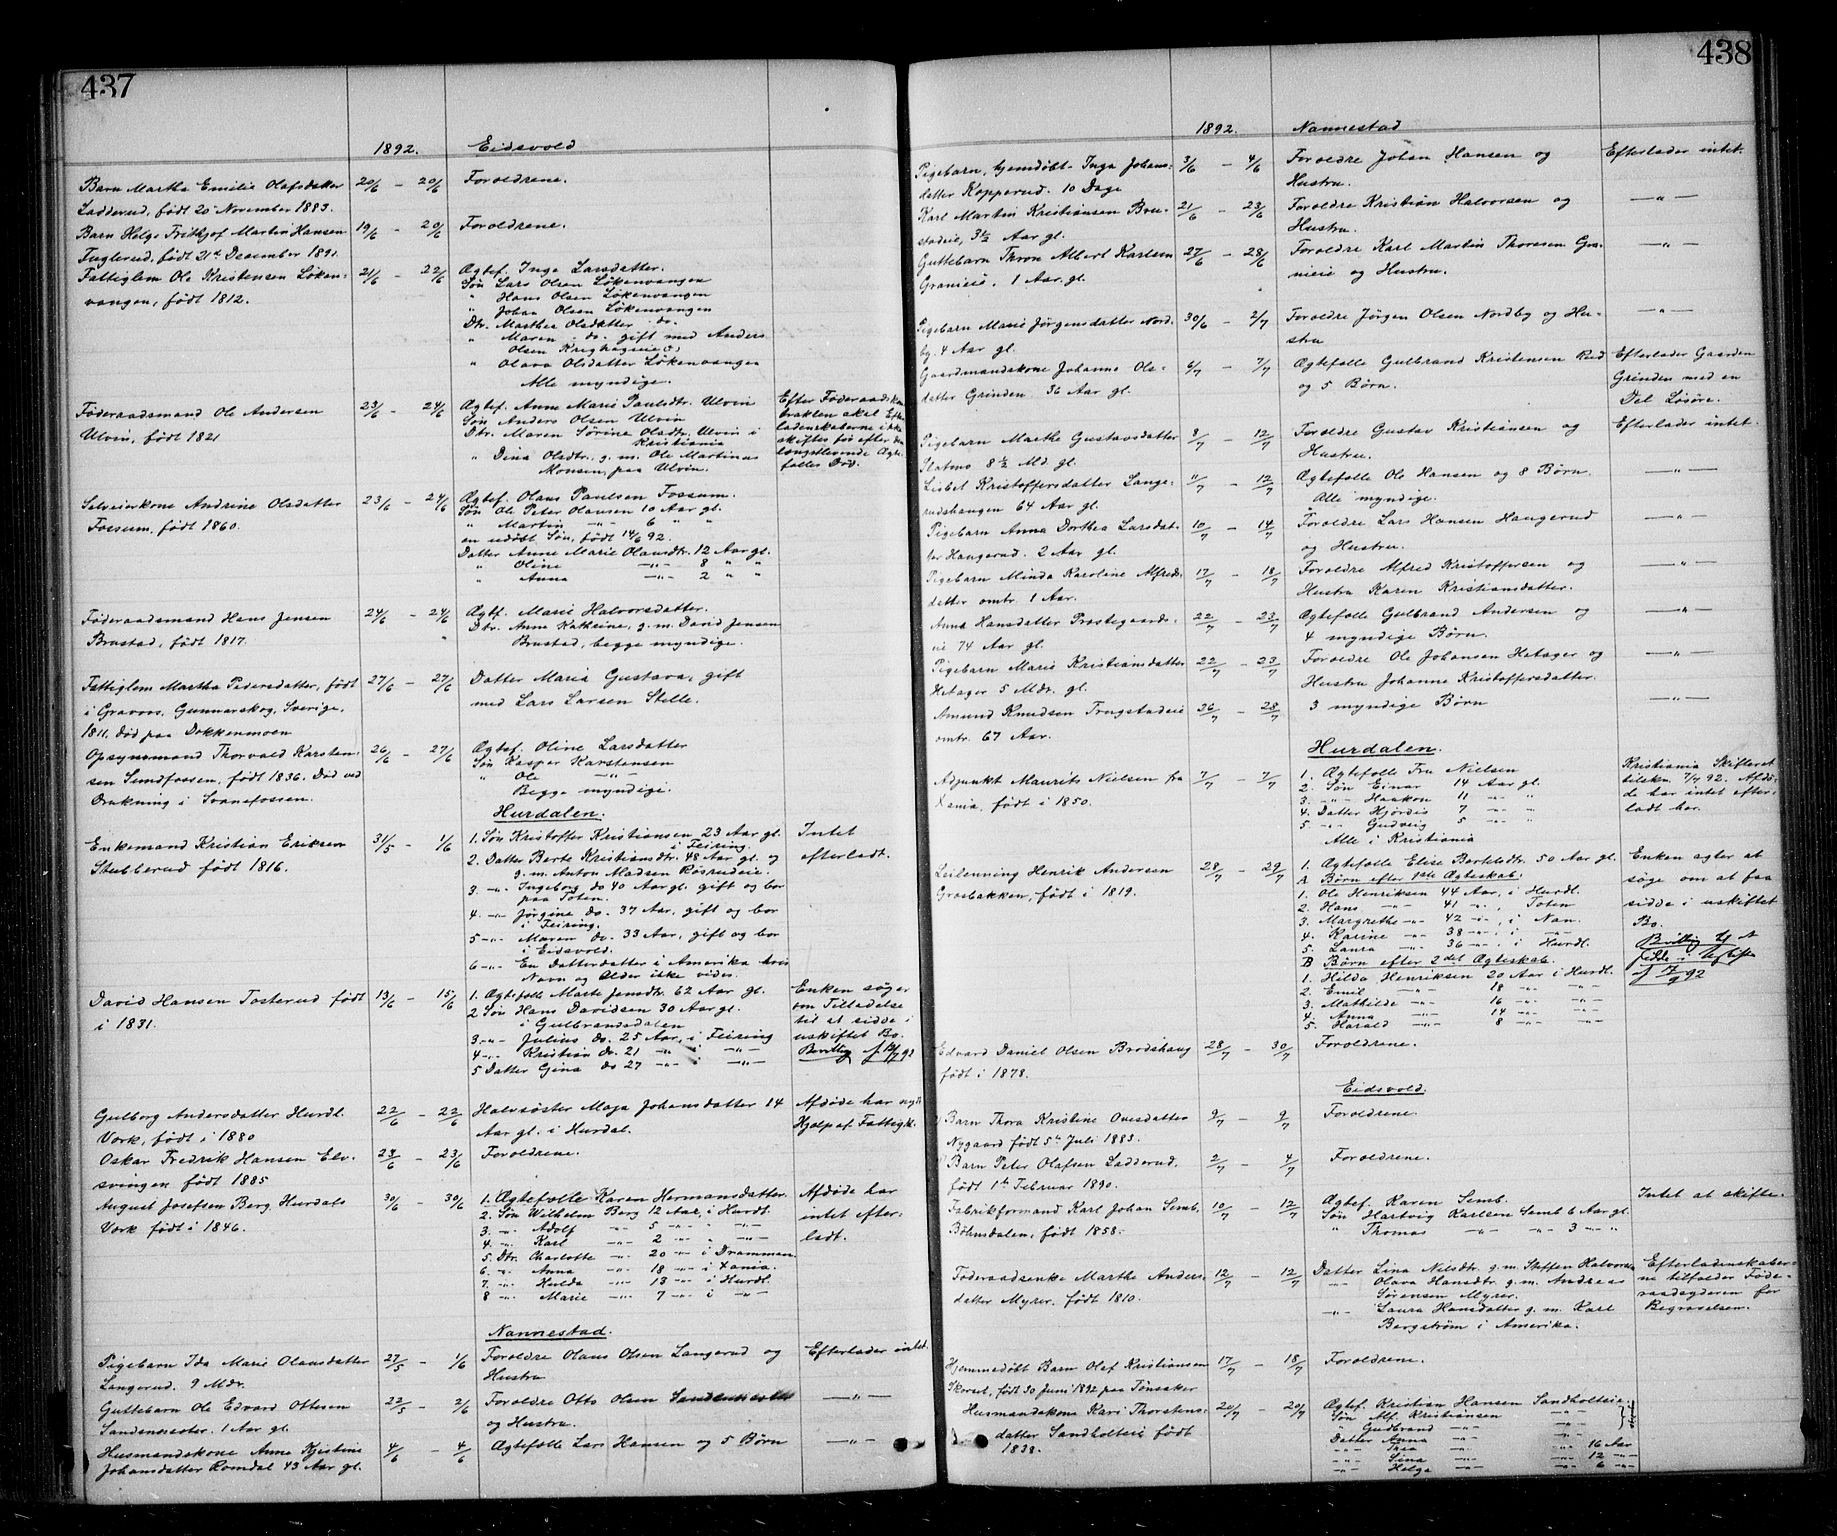 437
1892. Eidsvold
Barn Martha Emilie Olafsdatter 20/6 – 20/6 Foroldrene.
Ladderud, født 20 November 1883.
Barn Helge Frithjof Martin Hansen 19/6 – 20/6 Foroldrene.
Fuglerud, født 21de Desember 1891.
Fattiglem Ole Kristensen Løken- 21/6 – 22/6 Ægtef. Inge Larsdatter.
vangen, født 1812. Søn Lars Olsen Løkenvangen
" Hans Olsen Løkenvangen
" Johan Olsen Løkenvangen
Dtr. Marthea Olsdatter do.
" Maren do. gift med Anders
Olsen
" Olava Olsdatter Løkenvangen
Alle myndige.
Føderaadsmand Ole Andersen 23/6 – 24/6 Ægtef. Anne Marie Paulsdtr. Ulvin Efter Føderaadskon-
Ulvin, født 1821 Søn Anders Olsen Ulvin trakten skal Efter-
Dtr. Maren Sørine Olsdtr. Ulvin i ladenskaberne ikke
Kristiania skiftes før efter den
" Dina Olsdtr., g. m. Ole Martinus længstlevende Ægte-
Monsen, paa Ulvin. fælles Død.
Selveierkone Andrine Olsdatter 23/6 – 24/6 Ægtef. Olaus Paulsen Fossum.
Fossum, født 1860. Søn Ole Peter Olausen 10 Aar gl.
" Martin –"– 6 " "
en udøbt Søn, født 14/6 92.
Datter Anne Marie Olausdtr. 12 Aar gl.
" Oline –"– 8 " "
" Anna –"– 2 " "
Føderaadsmand Hans Jensen 24/6 – 24/6 Ægtf. Marie Halvorsdatter.
Brustad, født 1817. Dtr. Anne Kathrine, g. m. David Jensen
Brustad, begge myndige.
Fattiglem Martha Pedersdatter, født 27/6 – 27/6 Datter Maria Gustava, gift
i Gravaas, Gunnarskog, Sverige, med Lars Larsen Stelle.
1811, død paa Dokkenmoen
Opsynsmand Thorvald Karsten- 26/6 – 27/6 Ægtef. Oline Larsdatter
sen Sundfossen, født 1836. Død ved Søn Kasper Karstensen
Drukning i Svanefossen. " Ole –"–
Begge myndige.
Hurdalen.
Enkemand Kristian Eriksen 31/5 – 1/6 1. Søn Kristoffer Kristiansen, 23 Aar gl. Intet
Stubberud født 1816. i Feiring. efterladt.
2. Datter Berte Kristiansdtr. 48 Aar gl. og
g. m. Anton Madsen Røsrudeie.
3. –"– Ingeborg do 40 Aar gl. gift og bor
paa Toten.
4. –"– Jørgine do. 37 Aar, gift og bor
i Feiring.
5 –"– Maren do. 33 Aar, gift og bor
i Eidsvold.
6 –"– En Datterdatter i Amerika hvis
Navn og Alder ikke vides.
David Hansen Tosterud født 13/6 – 15/6 1. Ægtefælle Marte Jensdtr. 62 Aar gl. Enken søger
i 1831. 2 Søn Hans Davidsen 30 Aar gl. om Tilladelse
i Gulbrandsdalen til at sidde i
3 –"– Julius do. 25 Aar, i Feiring uskiftet Bo.
4 –"– Kristian do. 21 –"– i –"–
5 Datter Gina do 27 –"– i –"–
Gulborg Andersdatter Hurdl. 22/6 – 22/6 Halvsøster Maja Johansdatter 14 Afdøde har nydt
Værk, født i 1880 Aar gl. i Hurdal. Hjælp af Fattigk.
Oskar Fredrik Hansen Elv- 23/6 – 23/6 Foroldrene.
svingen født 1885
August Josefsen Berg Hurdals 30/6 – 30/6 1. Ægtefælle Karen Hermansdatter. Afdøde har
Værk født i 1846. 2. Søn Wilhelm Berg 12 Aar, i Hurdl. intet efter-
3. –"– Adolf –"– 5 –"– –"– ladt.
4. –"– Karl –"– 2 –"– –"–
5. Dtr. Charlotte –"– 20 –"– i Drammen.
6. –"– Anna –"– 18 –"– i Xania.
7. –"– Hulda –"– 13 –"– i Hurdl
8 –"– Marie –"– 7 –"– i –"–
Nannestad.
Pigebarn Ida Marie Olausdatter 27/5 – 1/6 Foroldre Olaus Olsen Langerud og Efterlader intet.
Langerud. 9 Mdr. Hustru
Guttebarn Ole Edvard Ottesen 22/5 – 2/6 Foroldre Otto Olsen –"–
Sandenseter. 1 Aar gl. og Hustru.
Husmandskone Anne Kjestine 4/6 – 4/6 Ægtefælle Lars Hansen og 5 Børn –"–
Johansdatter Romdal 43 Aar gl.
438
1892. Nannestad
Pigebarn, hjemdøbt Inga Johans- 3/6 – 4/6 Foroldre Johan Hansen og Efterlader intet.
datter Kopperud. 10 Dage Hustru.
Karl Martin Kristiansen Bru- 21/6 – 23/6 Foroldre Kristian Halvorsen og –"–
stadeie, 3½ Aar gl. Hustru.
Guttebarn Thron Albert Karlsen 27/6 – 28/6 Foroldre Karl Martin Thoresen Gra- –"–
Granieie. 1 Aar gl. nieie og Hustru.
Pigebarn Marie Jørgensdatter Nord- 30/6 – 2/7 Foroldre Jørgen Olsen Nordby og Hu- –"–
by. 4 Aar gl. stru
Gaardmandskone Johanne Ols- 6/7 – 7/7 Ægtefælle Gulbrand Kristensen Rud Efterlader Gaarden
datter Grinden 36 Aar gl. og 5 Børn. Grinden med en
Del Løsøre.
Pigebarn Marthe Gustavsdatter 8/7 – 12/7 Foroldre Gustav Kristiansen og Efterlader intet.
Slatmo 8½ Md. gl. Hustru.
Lisbet Kristoffersdatter Lange- 11/7 – 12/7 Ægtefælle Ole Hansen og 8 Børn. –"–
rudshaugen 64 Aar gl. Alle myndige.
Pigebarn Anna Dorthea Larsdat- 10/7 – 14/7 Foroldre Lars Hansen Haugerud –"–
ter Haugerud. 2 Aar gl. og Hustru.
Pigebarn Minda Karoline Alfreds- 17/7 – 18/7 Foroldre Alfred Kristoffersen og –"–
datter omtr. 1 Aar. Hustru Karen Kristiansdatter.
Anna Hansdatter Prostegaards- 22/7 – 23/7 Ægtefælle Gulbrand Andersen og –"–
eie 74 Aar gl. 4 myndige Børn.
Pigebarn Marie Kristiansdatter 22/7 – 23/7 Foroldre Ole Johansen Hetager og –"–
Hetager 5 Mdr. gl. Hustru Johanne Kristoffersdatter.
Amund Knudsen Trugstadeie 26/7 – 28/7 3 myndige Børn –"–
omtr. 67 Aar.
Hurdalen.
Adjunkt Maurits Nielsen fra 7/7 – 7/7 1. Ægtefælle Fru Nielsen Kristiania Skifteret
Xania, født i 1850. 2. Søn Einar 14 Aar gl. tilskr. 7/7 92. Afdø-
3. –"– Haakon 11 –"– " de har intet efter-
4. Datter Hjørdis 7 –"– " ladt her.
5 –"– Gudveig 5 –"– "
Alle i Kristiania
Leilending Henrik Andersen 28/7 – 29/7 1. Ægtefælle Elise Bertelsdtr. 50 Aar gl. Enken agter at
Grosbakken, født i 1819. A Børn efter 1ste Ægteskab: søge om at faa
1. Ole Henriksen 44 Aar, i Hurdl. sidde i uskiftet
2. Hans –"– 41 –"–, Toten Bo.
3. Margrethe –"– 42 –"–, i Nan.
4. Karine –"– 38 –"–, i –"–
5. Laura –"– 36 –"–, i Hurdl.
B Børn efter 2det Ægteskab.
1. Hilda Henriksen 20 Aar i Hurdl.
2. Emil –"– 18 –"– –"–
3. Mathilde –"– 16 –"– –"–
4. Anna –"– 14 –"– –"–
5. Harald –"– 8 –"– –"–
Edvard Daniel Olsen Brødshaug 28/7 – 30/7 Foroldrene.
født i 1878.
Eidsvold.
Barn Thora Kristine Ovesdatter 2/7 – 2/7 Foroldrene.
Nygaard født 5te Juli 1883.
Barn Peter Olafsen Ladderud. 2/7 – 4/7 Foroldrene.
født 1ste Februar 1890.
Fabrikformand Karl Johan Semb. 10/7 – 12/7 Ægtef. Karen Semb. Intet at skifte.
Bøhnsdalen, født 1858. Søn Hartvig Karlsen Semb 6 Aar gl.
" Thomas –"– –"– 3 –"– "
Føderaadsenke Marthe Anders- 12/7 – 12/7 Datter Lina Nilsdtr. g. m. Steffen Halvorsen Efterladenskaber-
datter Myrer. født 1810. –"– Olava Hansdtr. g. m. Andreas ne tilfalder Føde-
Sørensen Myrer. raadsyderen for
–"– Laura Hansdatter g. m. Karl Begravelsen.
Bergstrøm i Amerika.
Hjemmedøbt Barn Olaf Kristiansen 17/7 – 18/7 Foroldrene.
Skorset, født 30 Juni 1892 paa Tønsaker
Husmandskone Kari Thorstens- 20/7 – 20/7 Ægtef. Kristian Hansen Sandholteie
datter Sandholteie født Søn Alf. Kristiansen –"–
1838. " Gudbrand –"– –"–
Datter Anna –"– –"–
–"– Thea –"– –"– 16 Aar
–"– Lina –"– –"– 12 –"–
–"– Helga –"– –"– 6 –"–